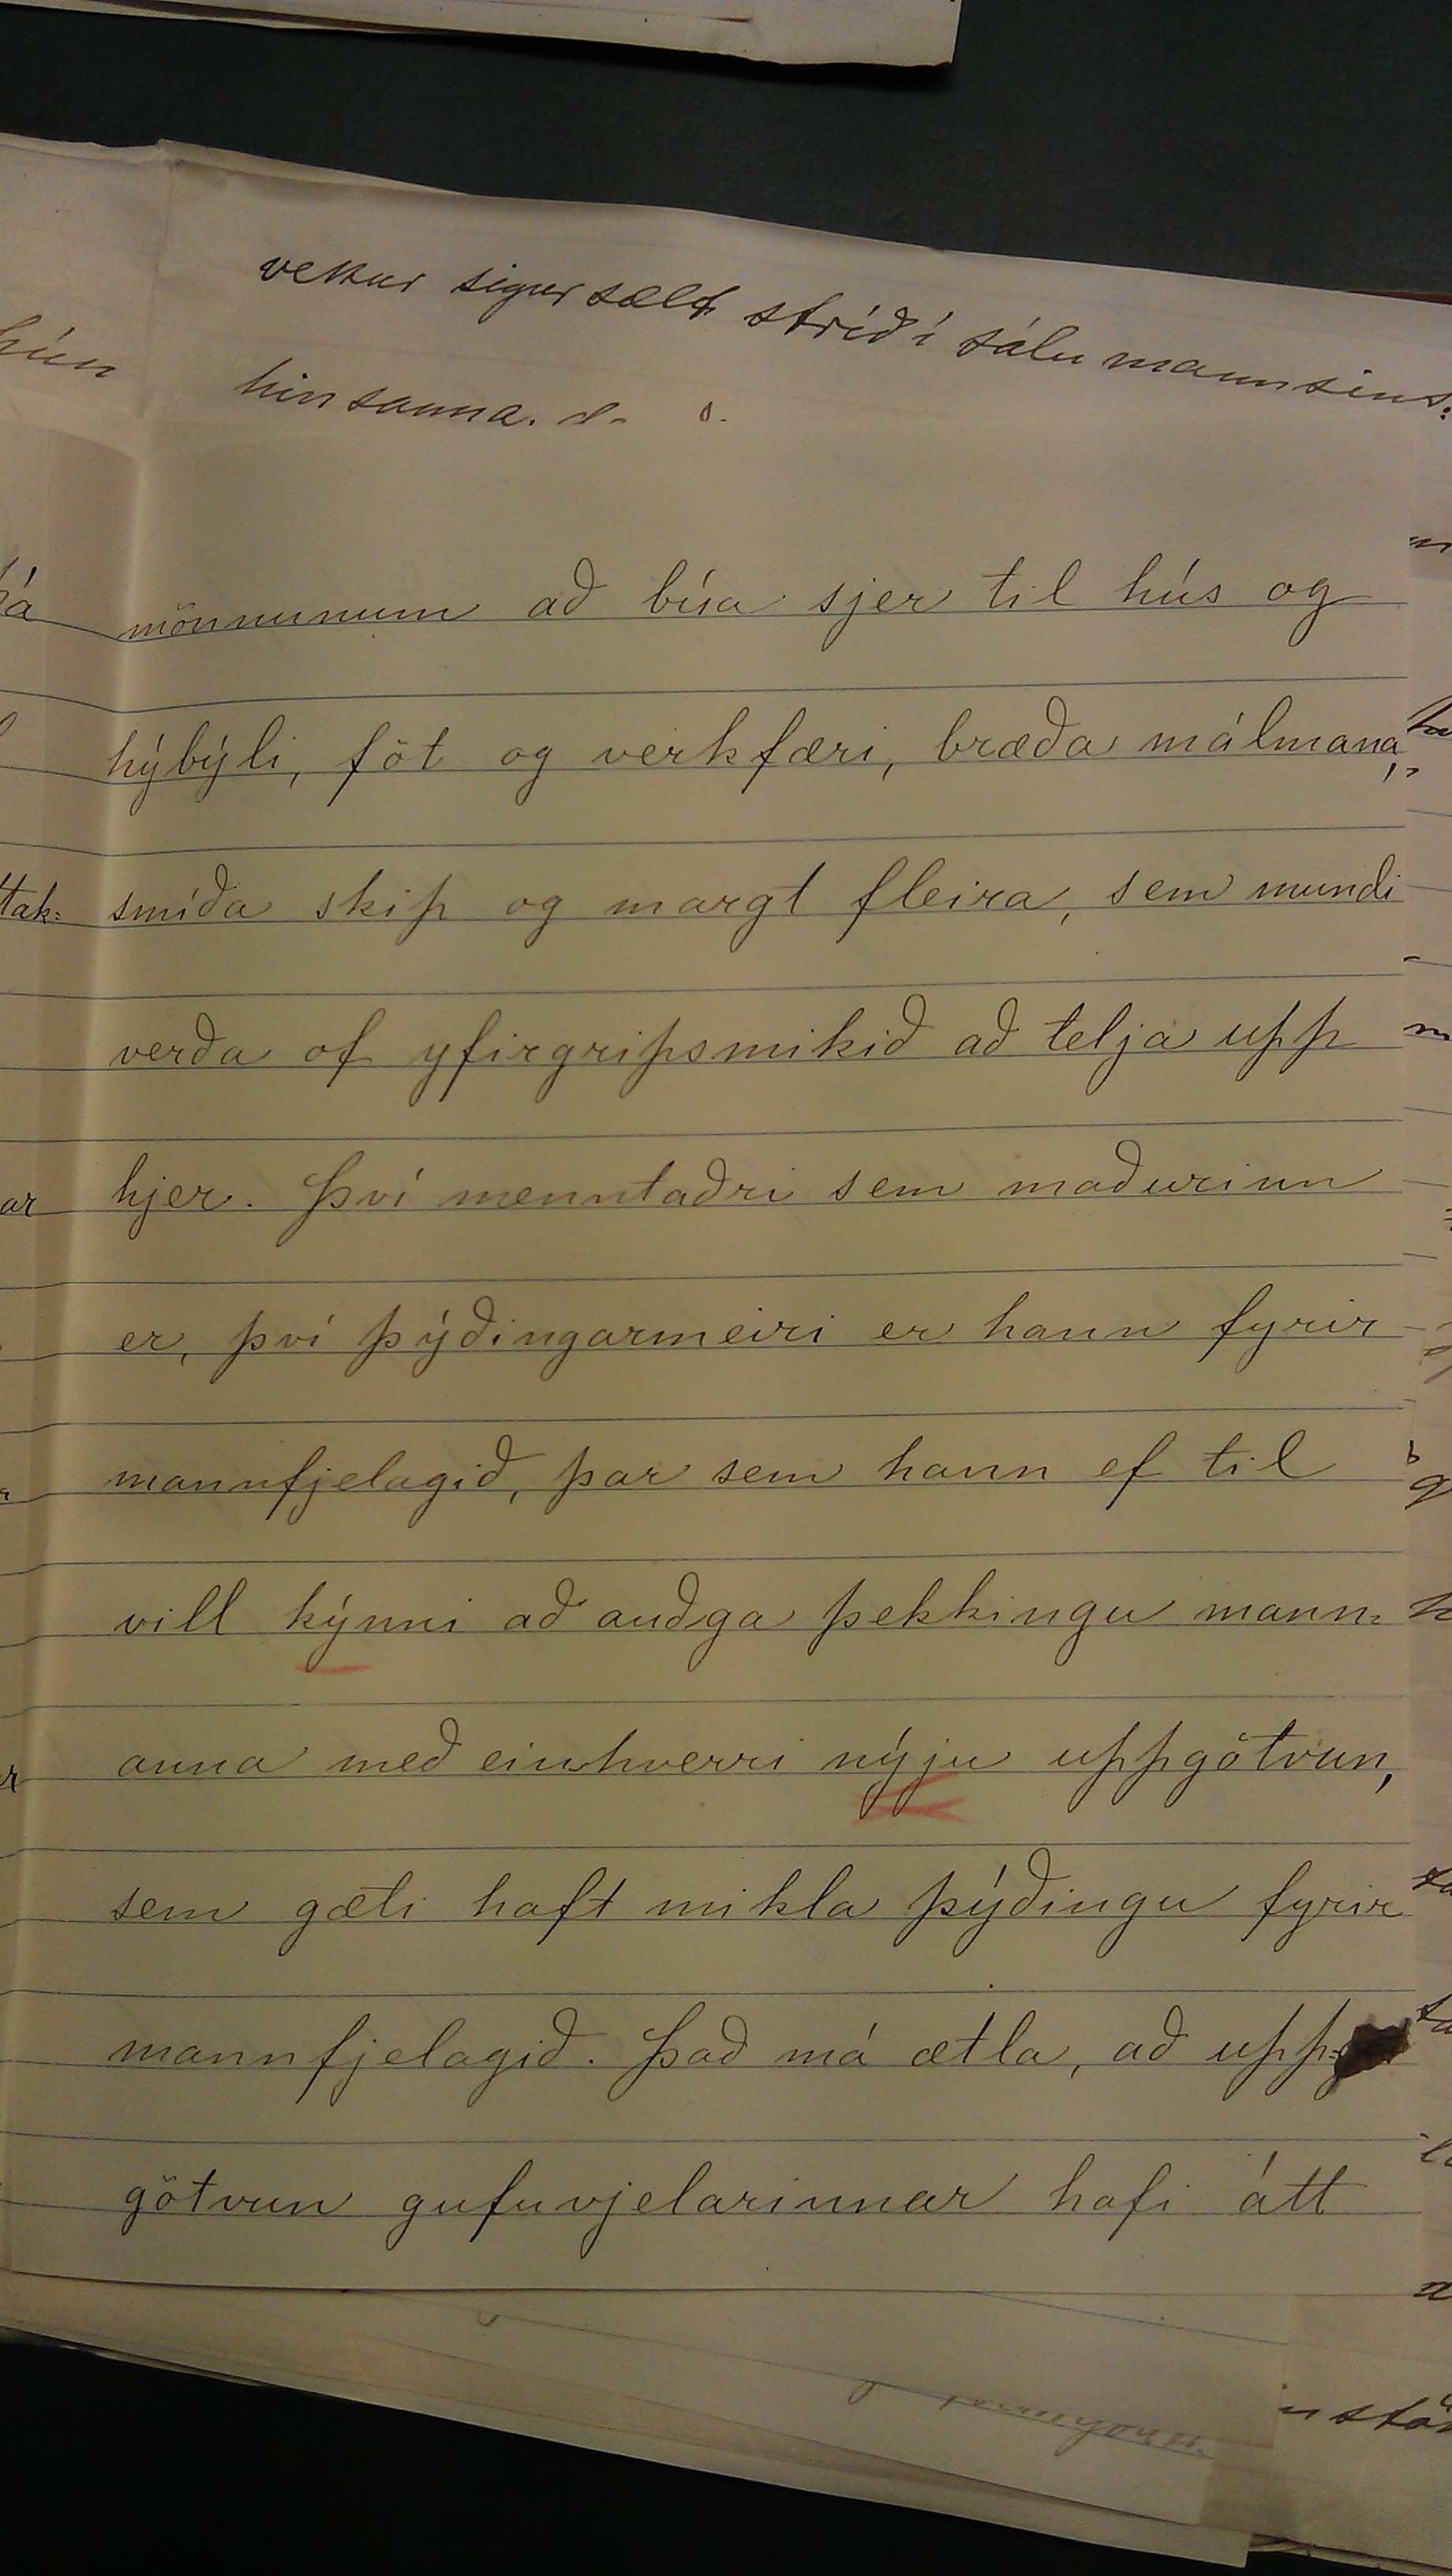 vekur sigursælt stríð í sálu mannsins:
hin sanna.
hún
mönnunum að búa sjer til hús og
hýbýli, föt og verkfæri, bræða málmana,
smíða skip og margt fleira, sem mundi
verða of yfirgripsmikið að telja upp
hjer. Því menntaðri sem maðurinn
er, því þýðingarmeiri er hann fyrir
mannfjelagið, þar sem hann ef til
vill kýnni að auðga þekkingu mann-
anna með einhverri nýju uppgötvun,
sem gæti haft mikla þýðingu fyrir
mannfjelagið. Það má ætla, að upp-
götvun gufuvjelarinnar hafi átt